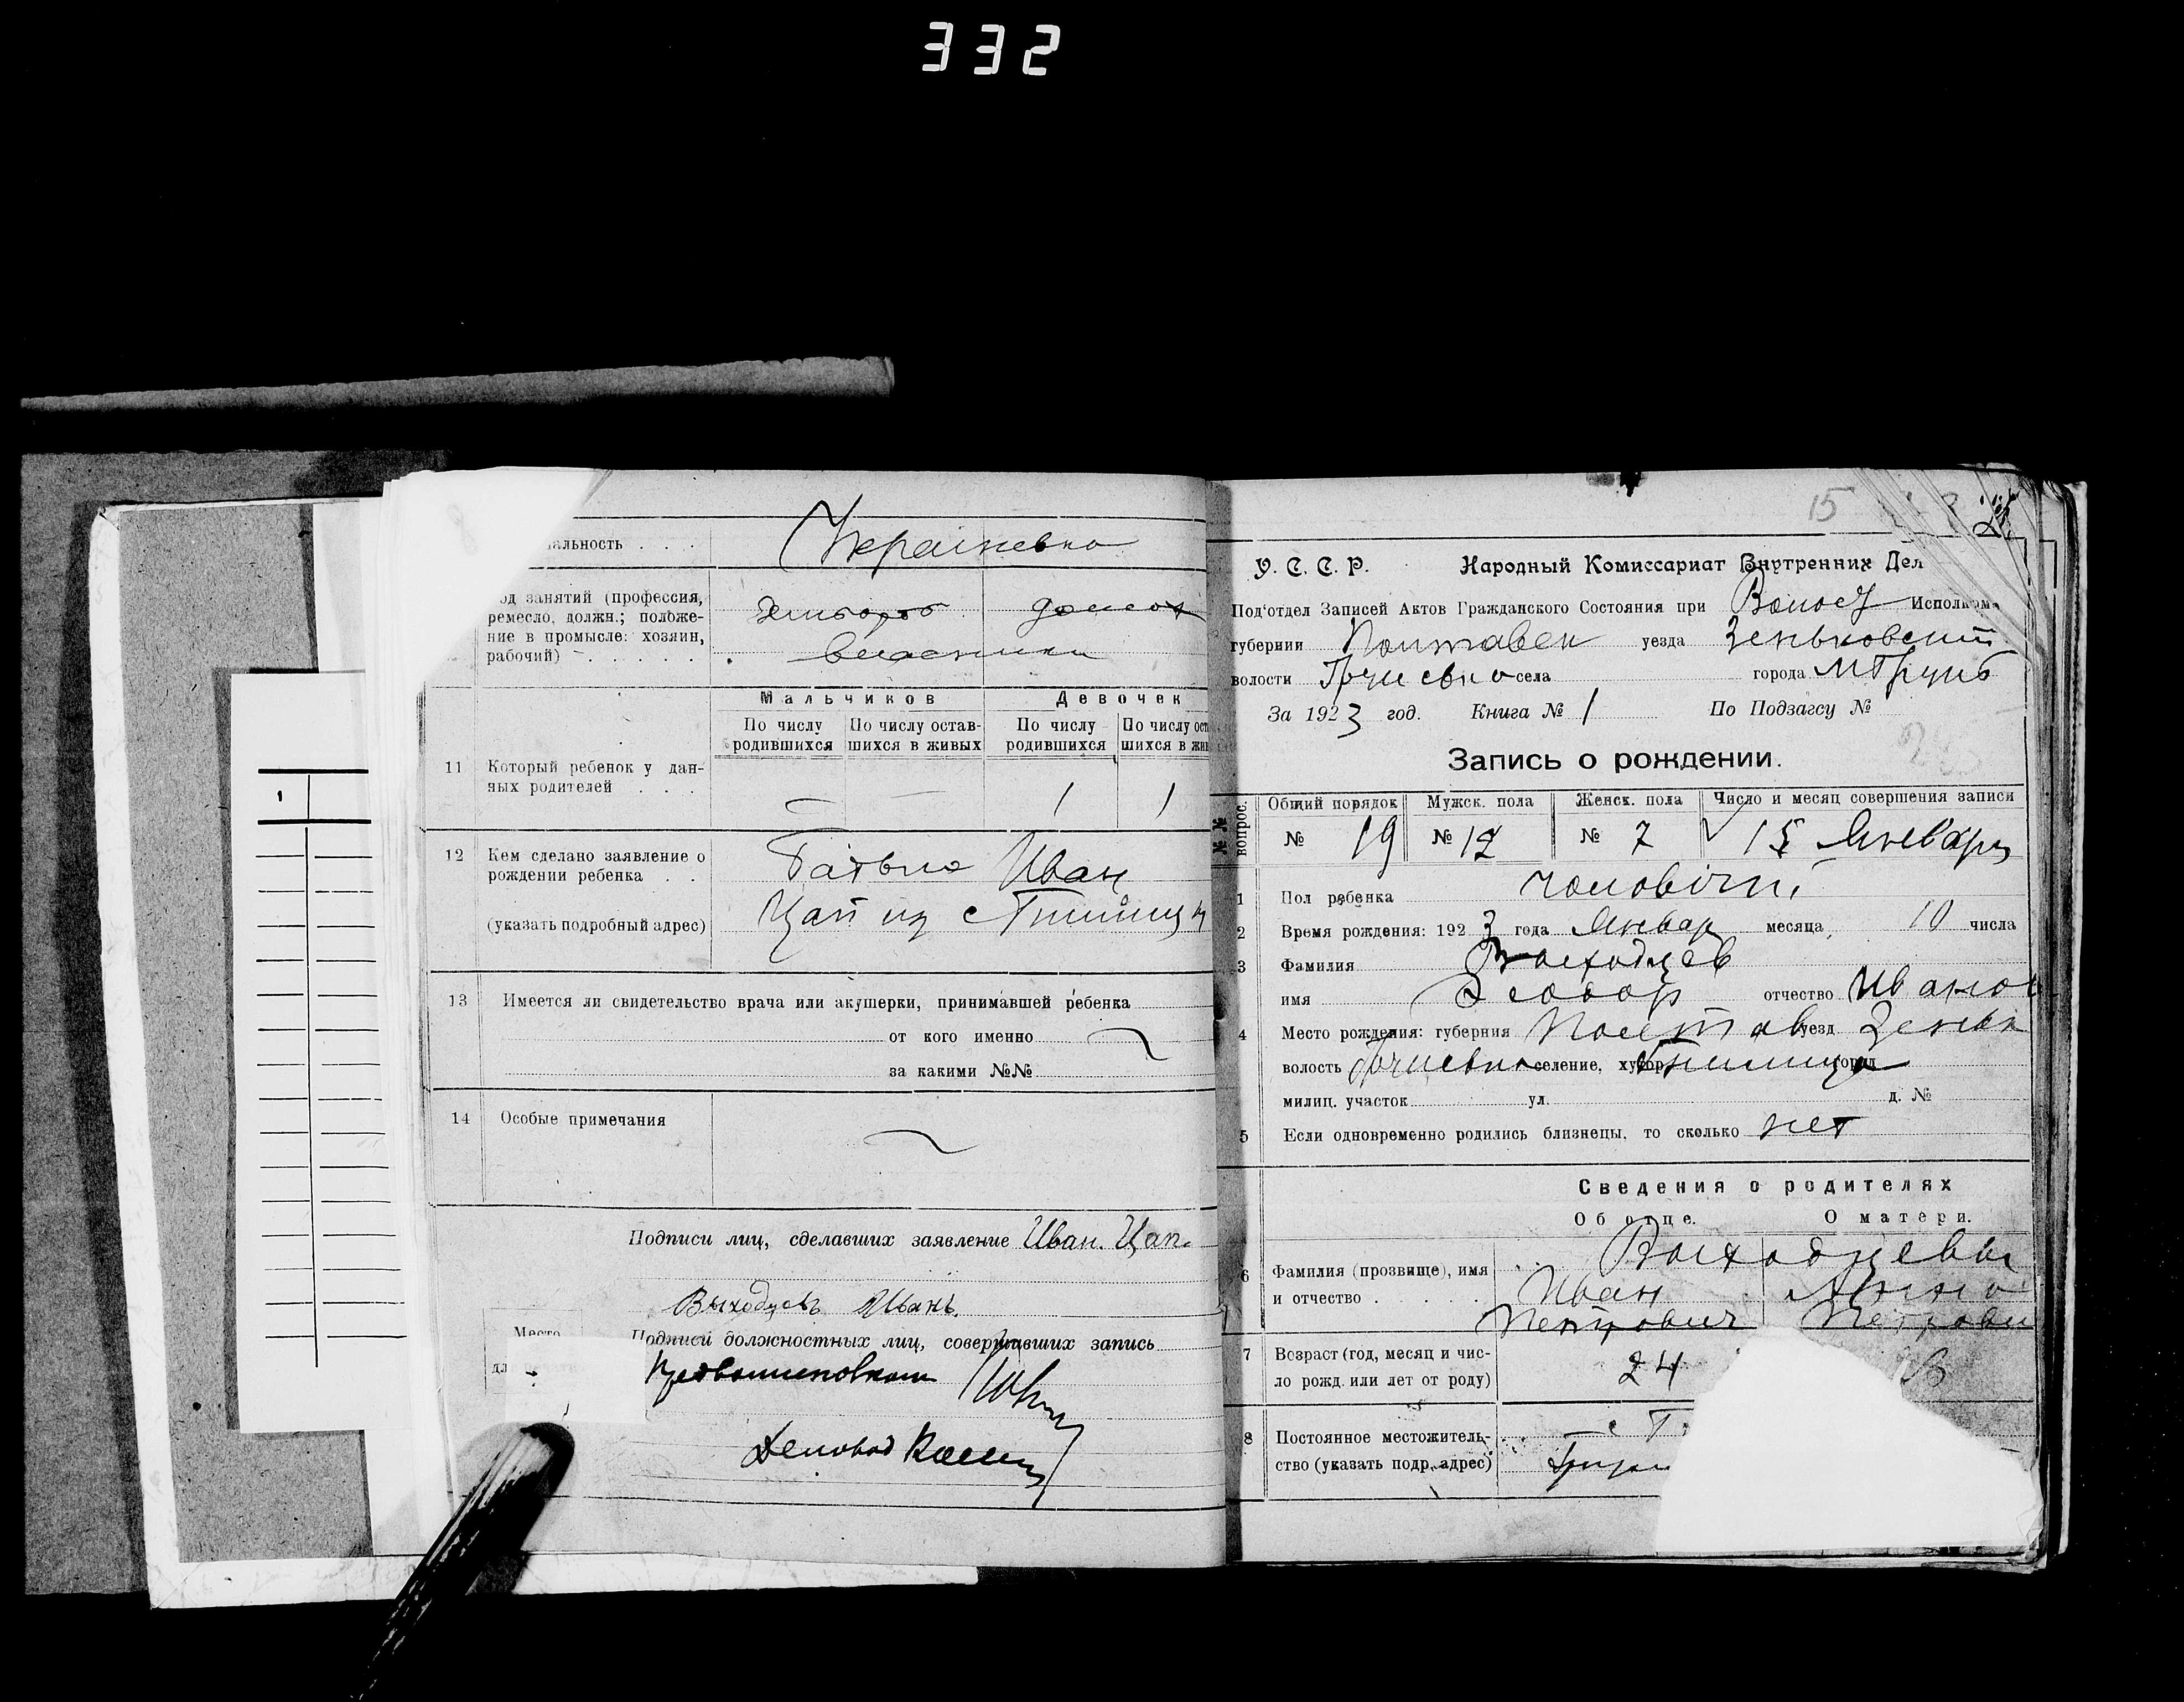 332
альность . . .
Украіневка
од занятий (профессия,
ремесло, должн.; положе-
ние в промысле: хозяин,
рабочий) — . . . . .
Хлибороб
Мальчиков Девочек
По числу родившихся По числу остав-шихся в живых По числу родившихся По числу ост шихся в жи
11 Который ребенок у дан-
ных родителей . . .
— — 1 1
12 Кем сделано заявление о
рождении ребенка . .
(указать подробный адрес)
Батько Иван
Цап из с
13 Имеется ли свидетельство врача или акушерки, принимавшей ребенка
от кого именно
за какими №№
14 Особые примечания
Подписи лиц, сделавших заявление Иван. Цап.
Выходцевъ Иванъ.
Место
дл
Подписи должностных лиц, совершавших запись
Деловод
15
У. С. С. Р. Народный Комиссариат Внутренних Дел
Под'отдел Записей Актов Гражданского Состояния при Волос Исполком
губернии Полтавск уезда Зеньковский
волости села города м Грунь
За 1923 год. Книга № 1 По Подзагсу №
Запись о рождении.
№№ вопрос.
Общий порядок Мужск. пола Женск. пола Число и месяц совершения записи
№ 19 № 12 № 7 15 Января
1 Пол ребенка чоловічі
2 Время рождения: 1923 года Январ месяца, 10 числа
3 Фамилия Выходцев
имя Федор отчество Иванов
4 Место рождения: губерния Полтав уезд Зеньк
волость селение, хутор город
милиц. участок ул. д. №
5 Если одновременно родились близнецы, то сколько нет
Сведения о родителях
Об отце. О матери.
6 Фамилия (прозвище), имя
и отчество . . . .
Выходцевы
Иван Анна
Петрович Петровн
7 Возраст (год, месяц и чис-
ло рожд. или лет от роду)
24
8 Постоянное местожитель-
ство (указать подр. адрес)